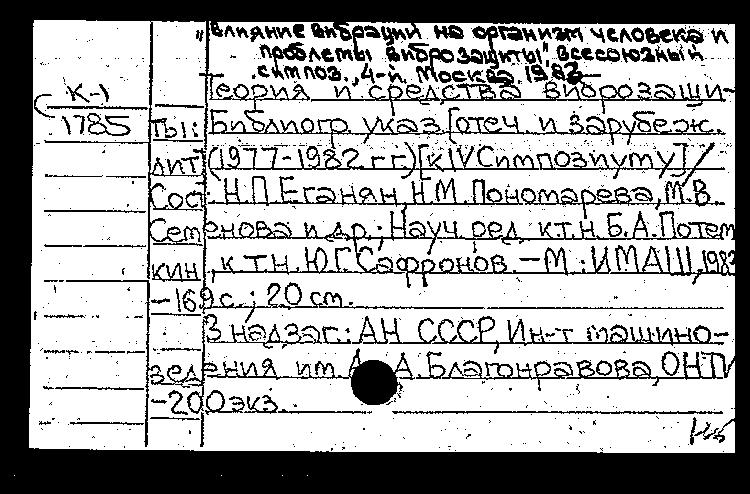 „Влияние вибрации на организм человека и
проблемы виброзащиты", Всесоюзный
симпоз., 4-й. Москва, 1982
К-1
1785
Теория и средства виброзащи-
ты: Библиогр. указ. [отеч. и зарубеж.
лит.] (1977-1982 гг.) [к IV Симпозиуму] /
Сост. Н.П. Еганян, Н.М. Пономарева, М.В.
Семенова и др.; Науч. ред. к.т.н. Б.А. Потем
кин, к.т.н. Ю.Г. Сафронов. – М.: ИМАШ, 1982
– 169 с.; 20 см.
В надзаг.: АН СССР, Ин-т машино-
ведения им. А. А. Благонравова, ОНТИ
– 200 экз.